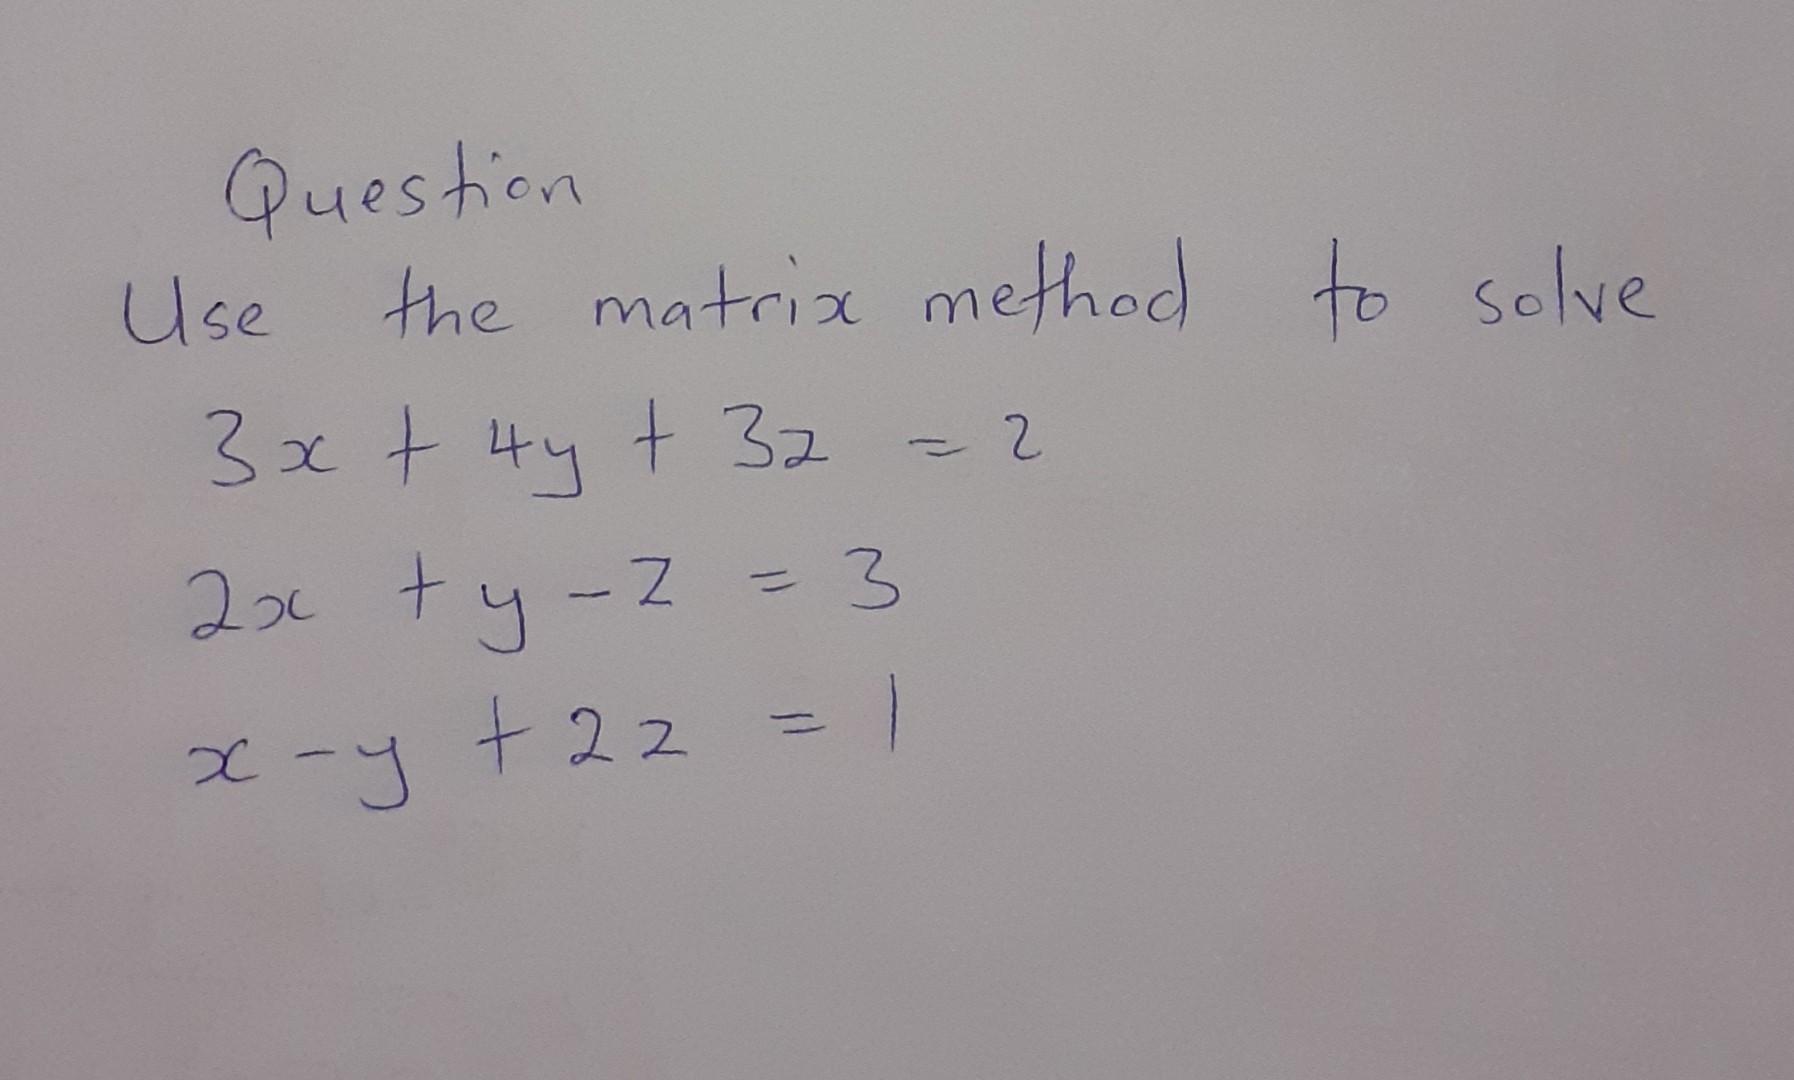 Question
Use the matrix method to solve
3x + 4y + 3z = 2
2x + y - z = 3
x - y + 2z = 1